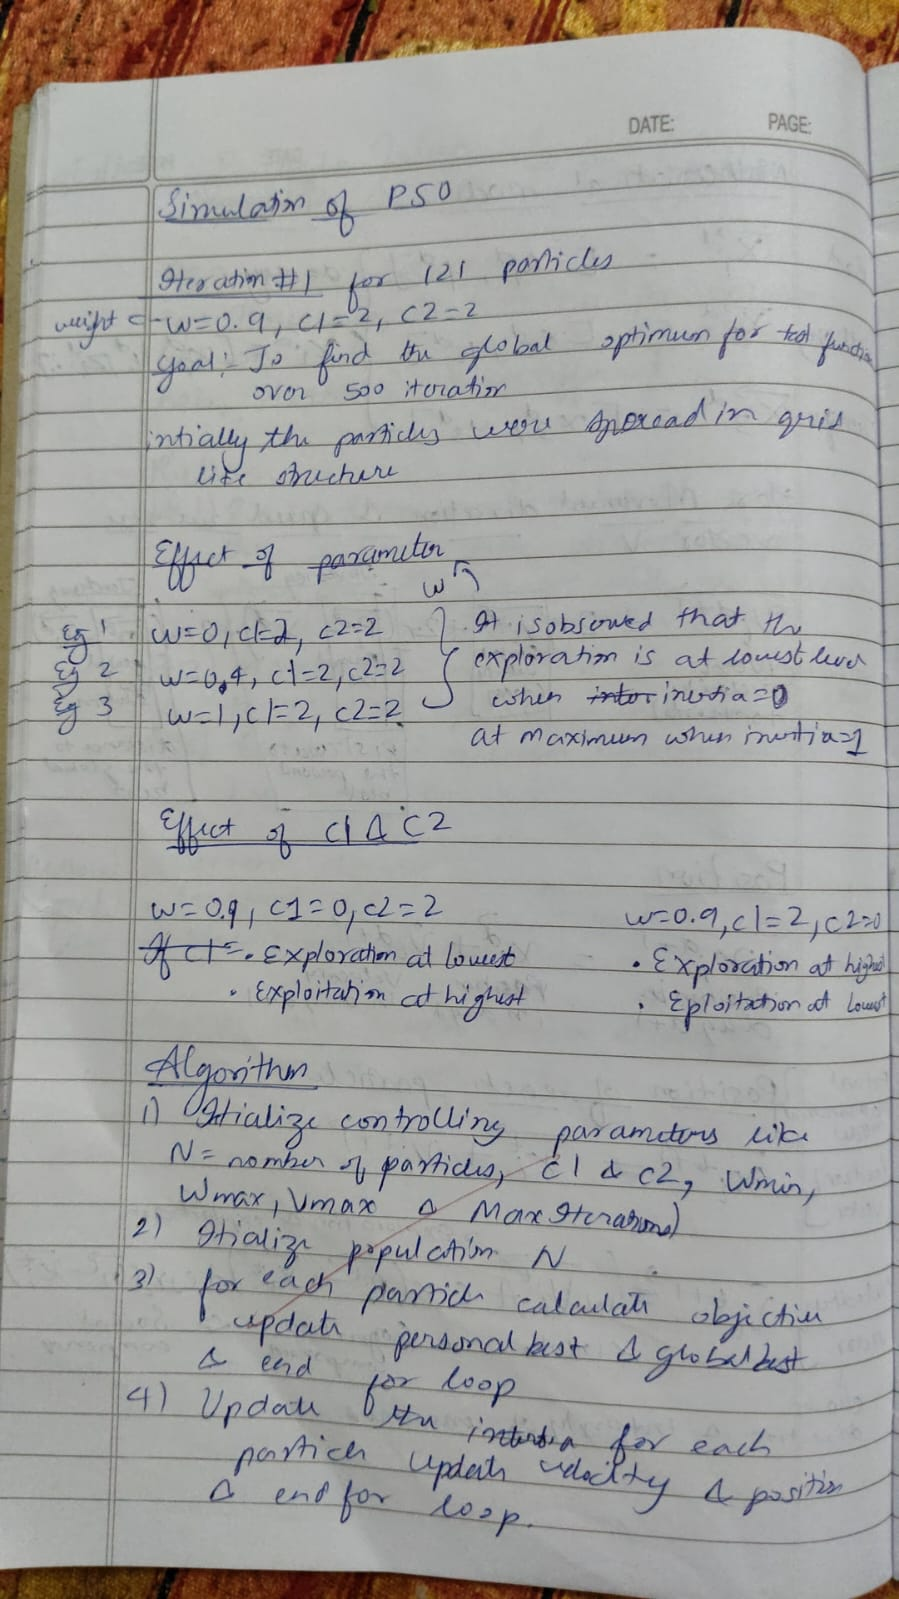 DATE: PAGE:
Simulation of PSO
Iteration #1 for 121 particles
weight w=0.9, c1=2, c2=2
Goal: To find the global optimum for test function
over 500 iteration
intially the particles were spread in grid
like structure
Effect of parameter
w
Eg 1 w=0, c1=2, c2=2 It is observed that the
Eg 2 w=0.4, c1=2, c2=2 exploration is at lowest level
Eg 3 w=1, c1=2, c2=2 when inertia=0
at maximum when inertia=1
Effect of c1 & c2
w=0.9, c1=0, c2=2 w=0.9, c1=2, c2=0
If c1= • Exploration at lowest • Exploration at highest
• Exploitation at highest • Eploitation at lowest
Algorithm
1) Itialize controlling parameters like
N= nomber of particles, c1 & c2, Wmin,
Wmax, Vmax & MaxIterations)
2) Itialize population N
3) for each particle calculate objective
update personal best & global best
& end for loop
4) Update the inertia for each
particle update velocity & position
& end for loop.